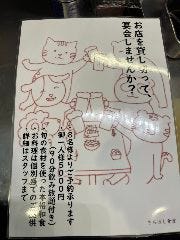 お店を貸し切って
宴会しませんか？
8名様よりご予約承ります
御一人様5000円
(90分飲み放題付き)
旬の食材を使った本格和食
お料理は個別盛でご提供
詳細はスタッフまで